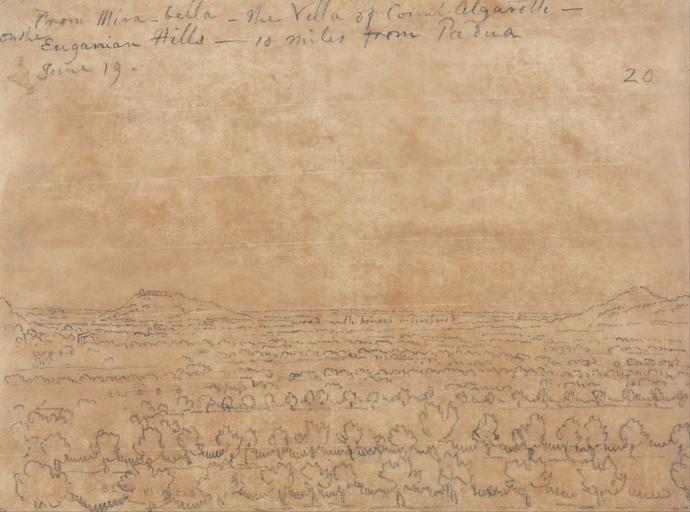 From Mira-bella - the Villa of Count Algarotti -
on the Euganian Hills - 10 miles from Padua
June 19.
20
wood with houses interspersed